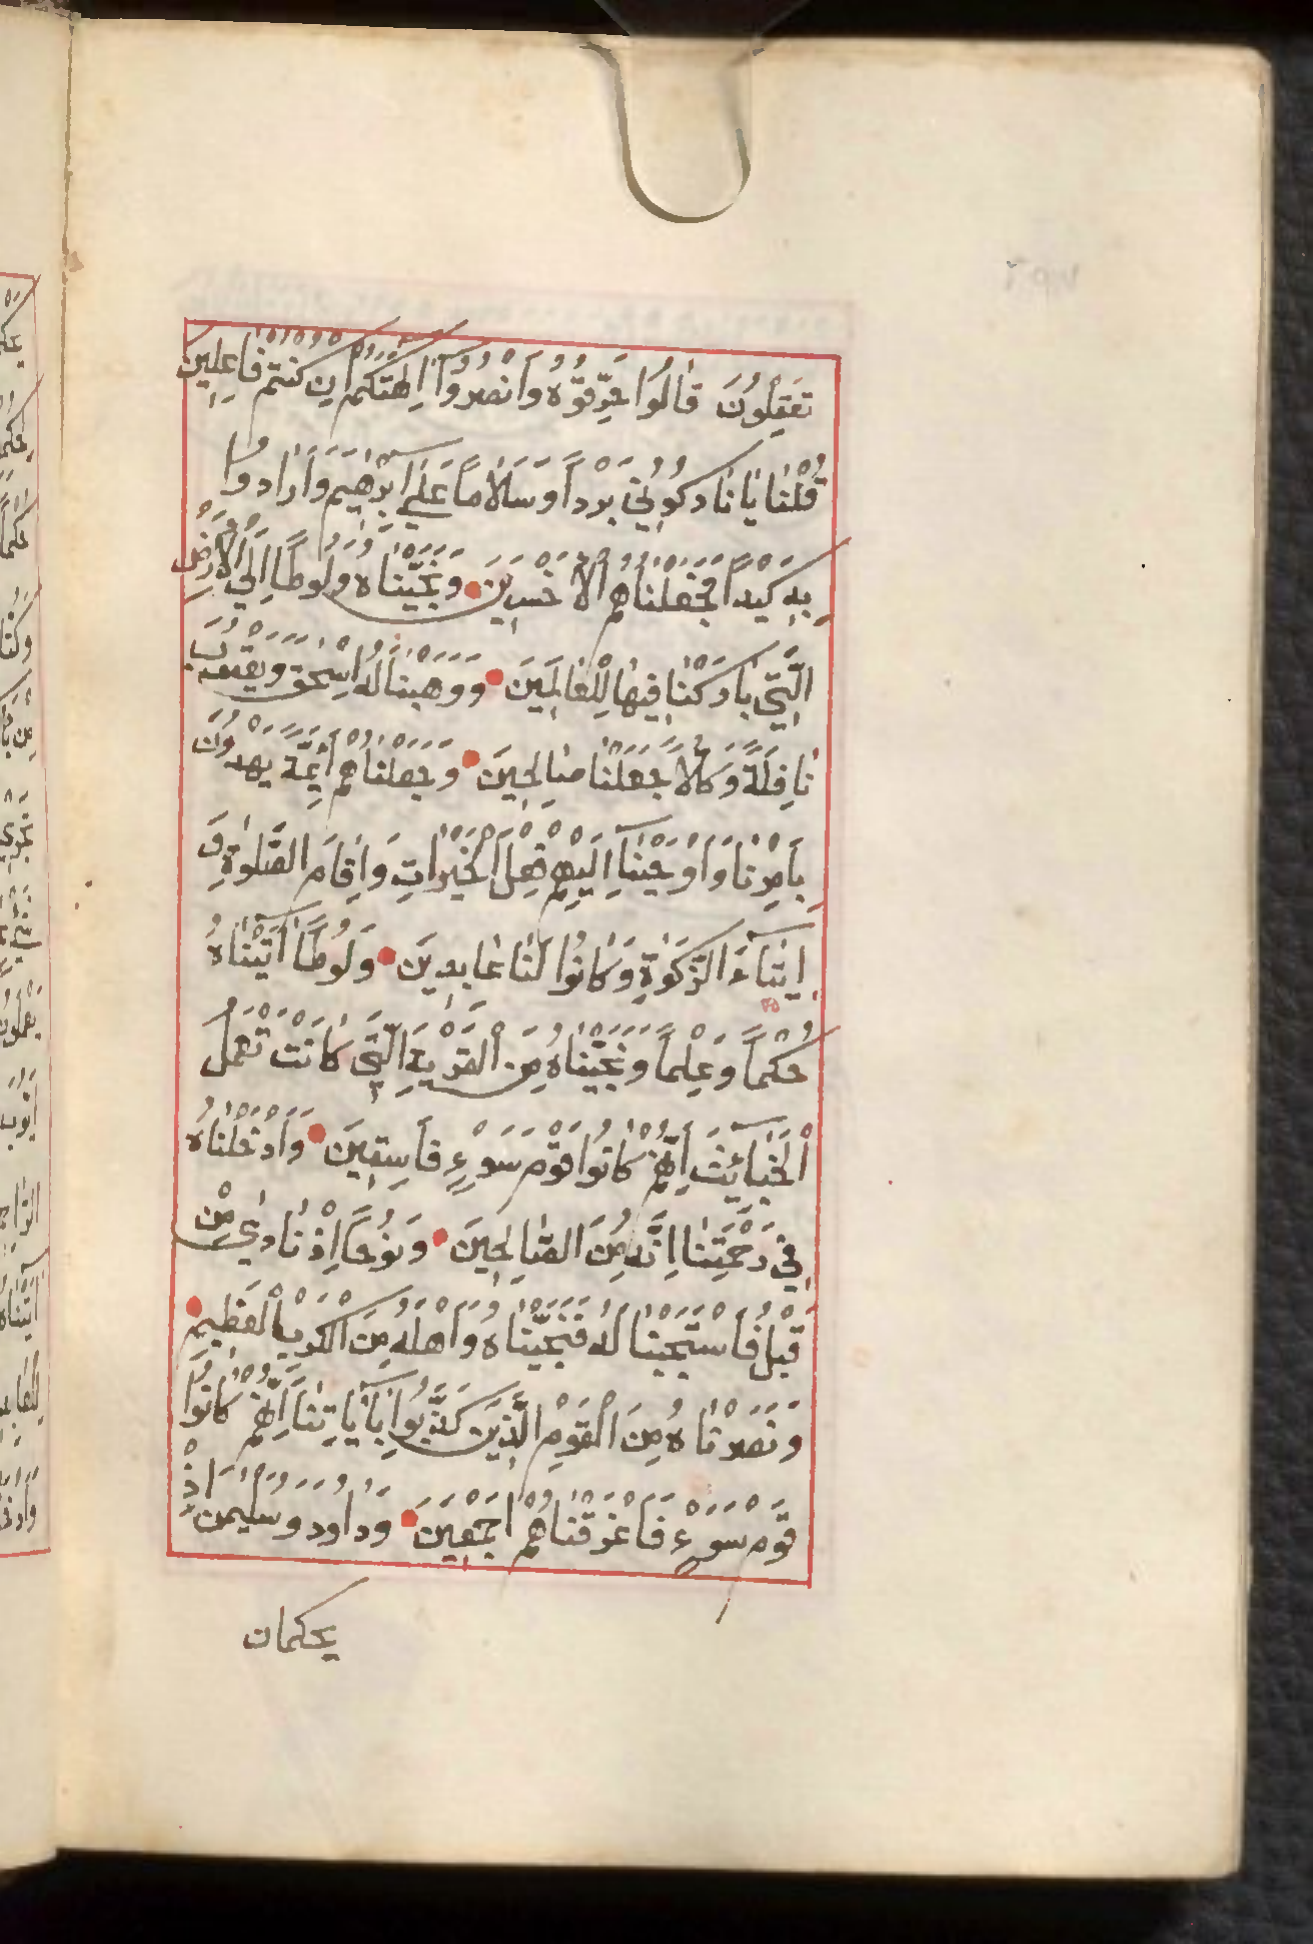 تَعْقِلُونَ قَالُوا حَرِّقُوهُ وَانْصُرُوا اٰلِهَتَكُمْ اِنْ كُنْتُمْ فَاعِلِينَ
قُلْنَا يَا نَارُ كُونِي بَرْداً وَسَلَاماً عَلَى اِبْرٰهِيمَ وَاَرَادُوا
بِهِ كَيْداً فَجَعَلْنَاهُمُ الْاَخْسَرِينَ وَنَجَّيْنَاهُ وَلُوطاً اِلَى الْاَرْضِ
الَّتِي بَارَكْنَا فِيهَا لِلْعَالَمِينَ وَوَهَبْنَا لَهُ اِسْحٰقَ وَيَعْقُوبَ
نَافِلَةً وَكُلّاً جَعَلْنَا صَالِحِينَ وَجَعَلْنَاهُمْ اَئِمَّةً يَهْدُونَ
بِاَمْرِنَا وَاَوْحَيْنَا اِلَيْهِمْ فِعْلَ الْخَيْرَاتِ وَاِقَامَ الصَّلٰوةِ وَ
اِيتَآءَ الزَّكٰوةِ وَكَانُوا لَنَا عَابِدِينَ وَلُوطاً اٰتَيْنَاهُ
حُكْماً وَعِلْماً وَنَجَّيْنَاهُ مِنَ الْقَرْيَةِ الَّتِي كَانَتْ تَعْمَلُ
الْخَبَآئِثَ اِنَّهُمْ كَانُوا قَوْمَ سَوْءٍ فَاسِقِينَ وَاَدْخَلْنَاهُ
فِي رَحْمَتِنَا اِنَّهُ مِنَ الصَّالِحِينَ وَنُوحاً اِذْ نَادٰى مِنْ
قَبْلُ فَاسْتَجَبْنَا لَهُ فَنَجَّيْنَاهُ وَاَهْلَهُ مِنَ الْكَرْبِ الْعَظِيمِ
وَنَصَرْنَاهُ مِنَ الْقَوْمِ الَّذِينَ كَذَّبُوا بِاٰيَاتِنَا اِنَّهُمْ كَانُوا
قَوْمَ سَوْءٍ فَاَغْرَقْنَاهُمْ اَجْمَعِينَ وَدَاوُدَ وَسُلَيْمٰنَ اِذْ
يحكمان